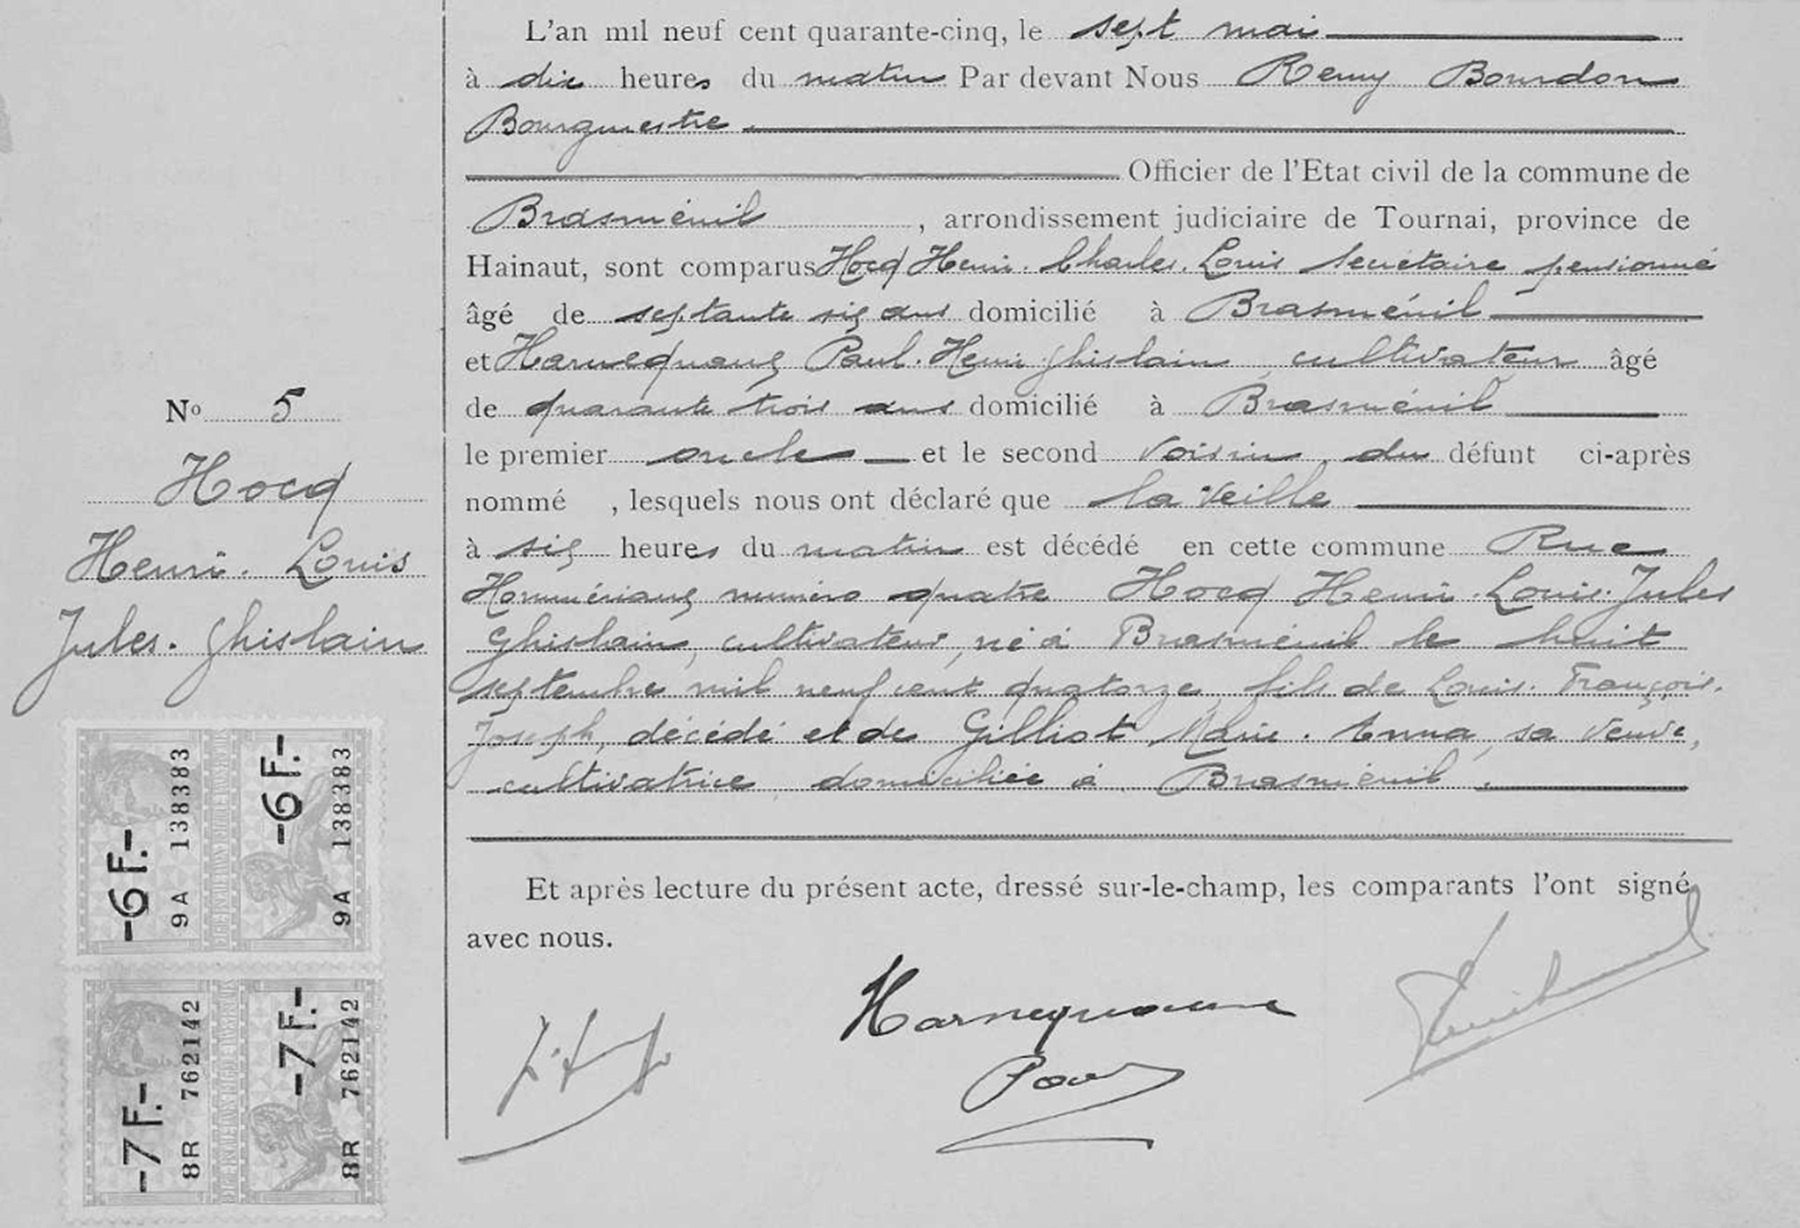 L'an mil neuf cent quarante-cinq, le sept mai
à dix heures du matin Par devant Nous Remy Bourdon
Bourgmestre
Officier de l'Etat civil de la commune de
Brasménil , arrondissement judiciaire de Tournai, province de
Hainaut, sont comparus Hocq Henri. Charles. Louis secrétaire pensionné
âgé de septante six ans domicilié à Brasménil
et Harnequaux Paul. Henri Ghislain, cultivateur âgé
de quarante trois ans domicilié à Brasménil
le premier oncle et le second voisin du défunt ci-après
nommé , lesquels nous ont déclaré que la veille
à six heures du matin est décédé en cette commune Rue
numéro quatre Hocq Henri. Louis. Jules
Ghislain, cultivateur, né à Brasménil le huit
septembre mil neuf cent quatorze, fils de Louis. François.
Joseph, décédé et de Gilliot Marie. Anna, sa veuve,
cultivatrice domiciliée à Brasménil.
Et après lecture du présent acte, dressé sur-le-champ, les comparants l'ont signé
avec nous.
Paul
No 5
Hocq
Henri. Louis
Jules. Ghislain
-6 F.-
9A 138383
-6 F.-
9A 138383
-7 F.-
8R 762142
-7 F.-
8R 762142